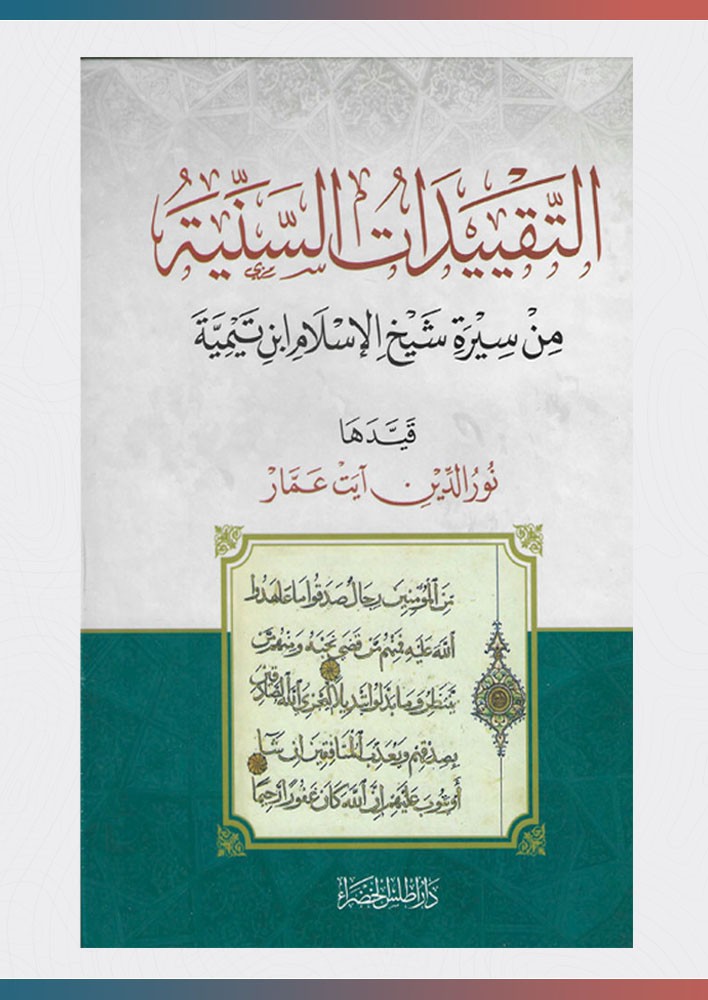 التَّقْيِيدَاتُ السَّنِيَّةُ
مِنْ سِيْرَةِ شَيْخِ الإِسْلَامِ ابْنِ تَيْمِيَّةَ
قَيَّدَهَا
نُورُ الدِّيْنِ آيَتْ عَمَّار
مِّنَ ٱلْمُؤْمِنِينَ رِجَالٌ صَدَقُوا مَا عَٰهَدُوا
ٱللَّهَ عَلَيْهِ فَمِنْهُم مَّن قَضَىٰ نَحْبَهُ وَمِنْهُم مَّن
يَنتَظِرُ وَمَا بَدَّلُوا تَبْدِيلًا لِّيَجْزِىَ ٱللَّهُ ٱلصَّٰدِقِينَ
بِصِدْقِهِمْ وَيُعَذِّبَ ٱلْمُنَٰفِقِينَ إِن شَآءَ
أَوْ يَتُوبَ عَلَيْهِمْ إِنَّ ٱللَّهَ كَانَ غَفُورًا رَّحِيمًا
دَارُ أَطْلَسِ الخَضْرَاء